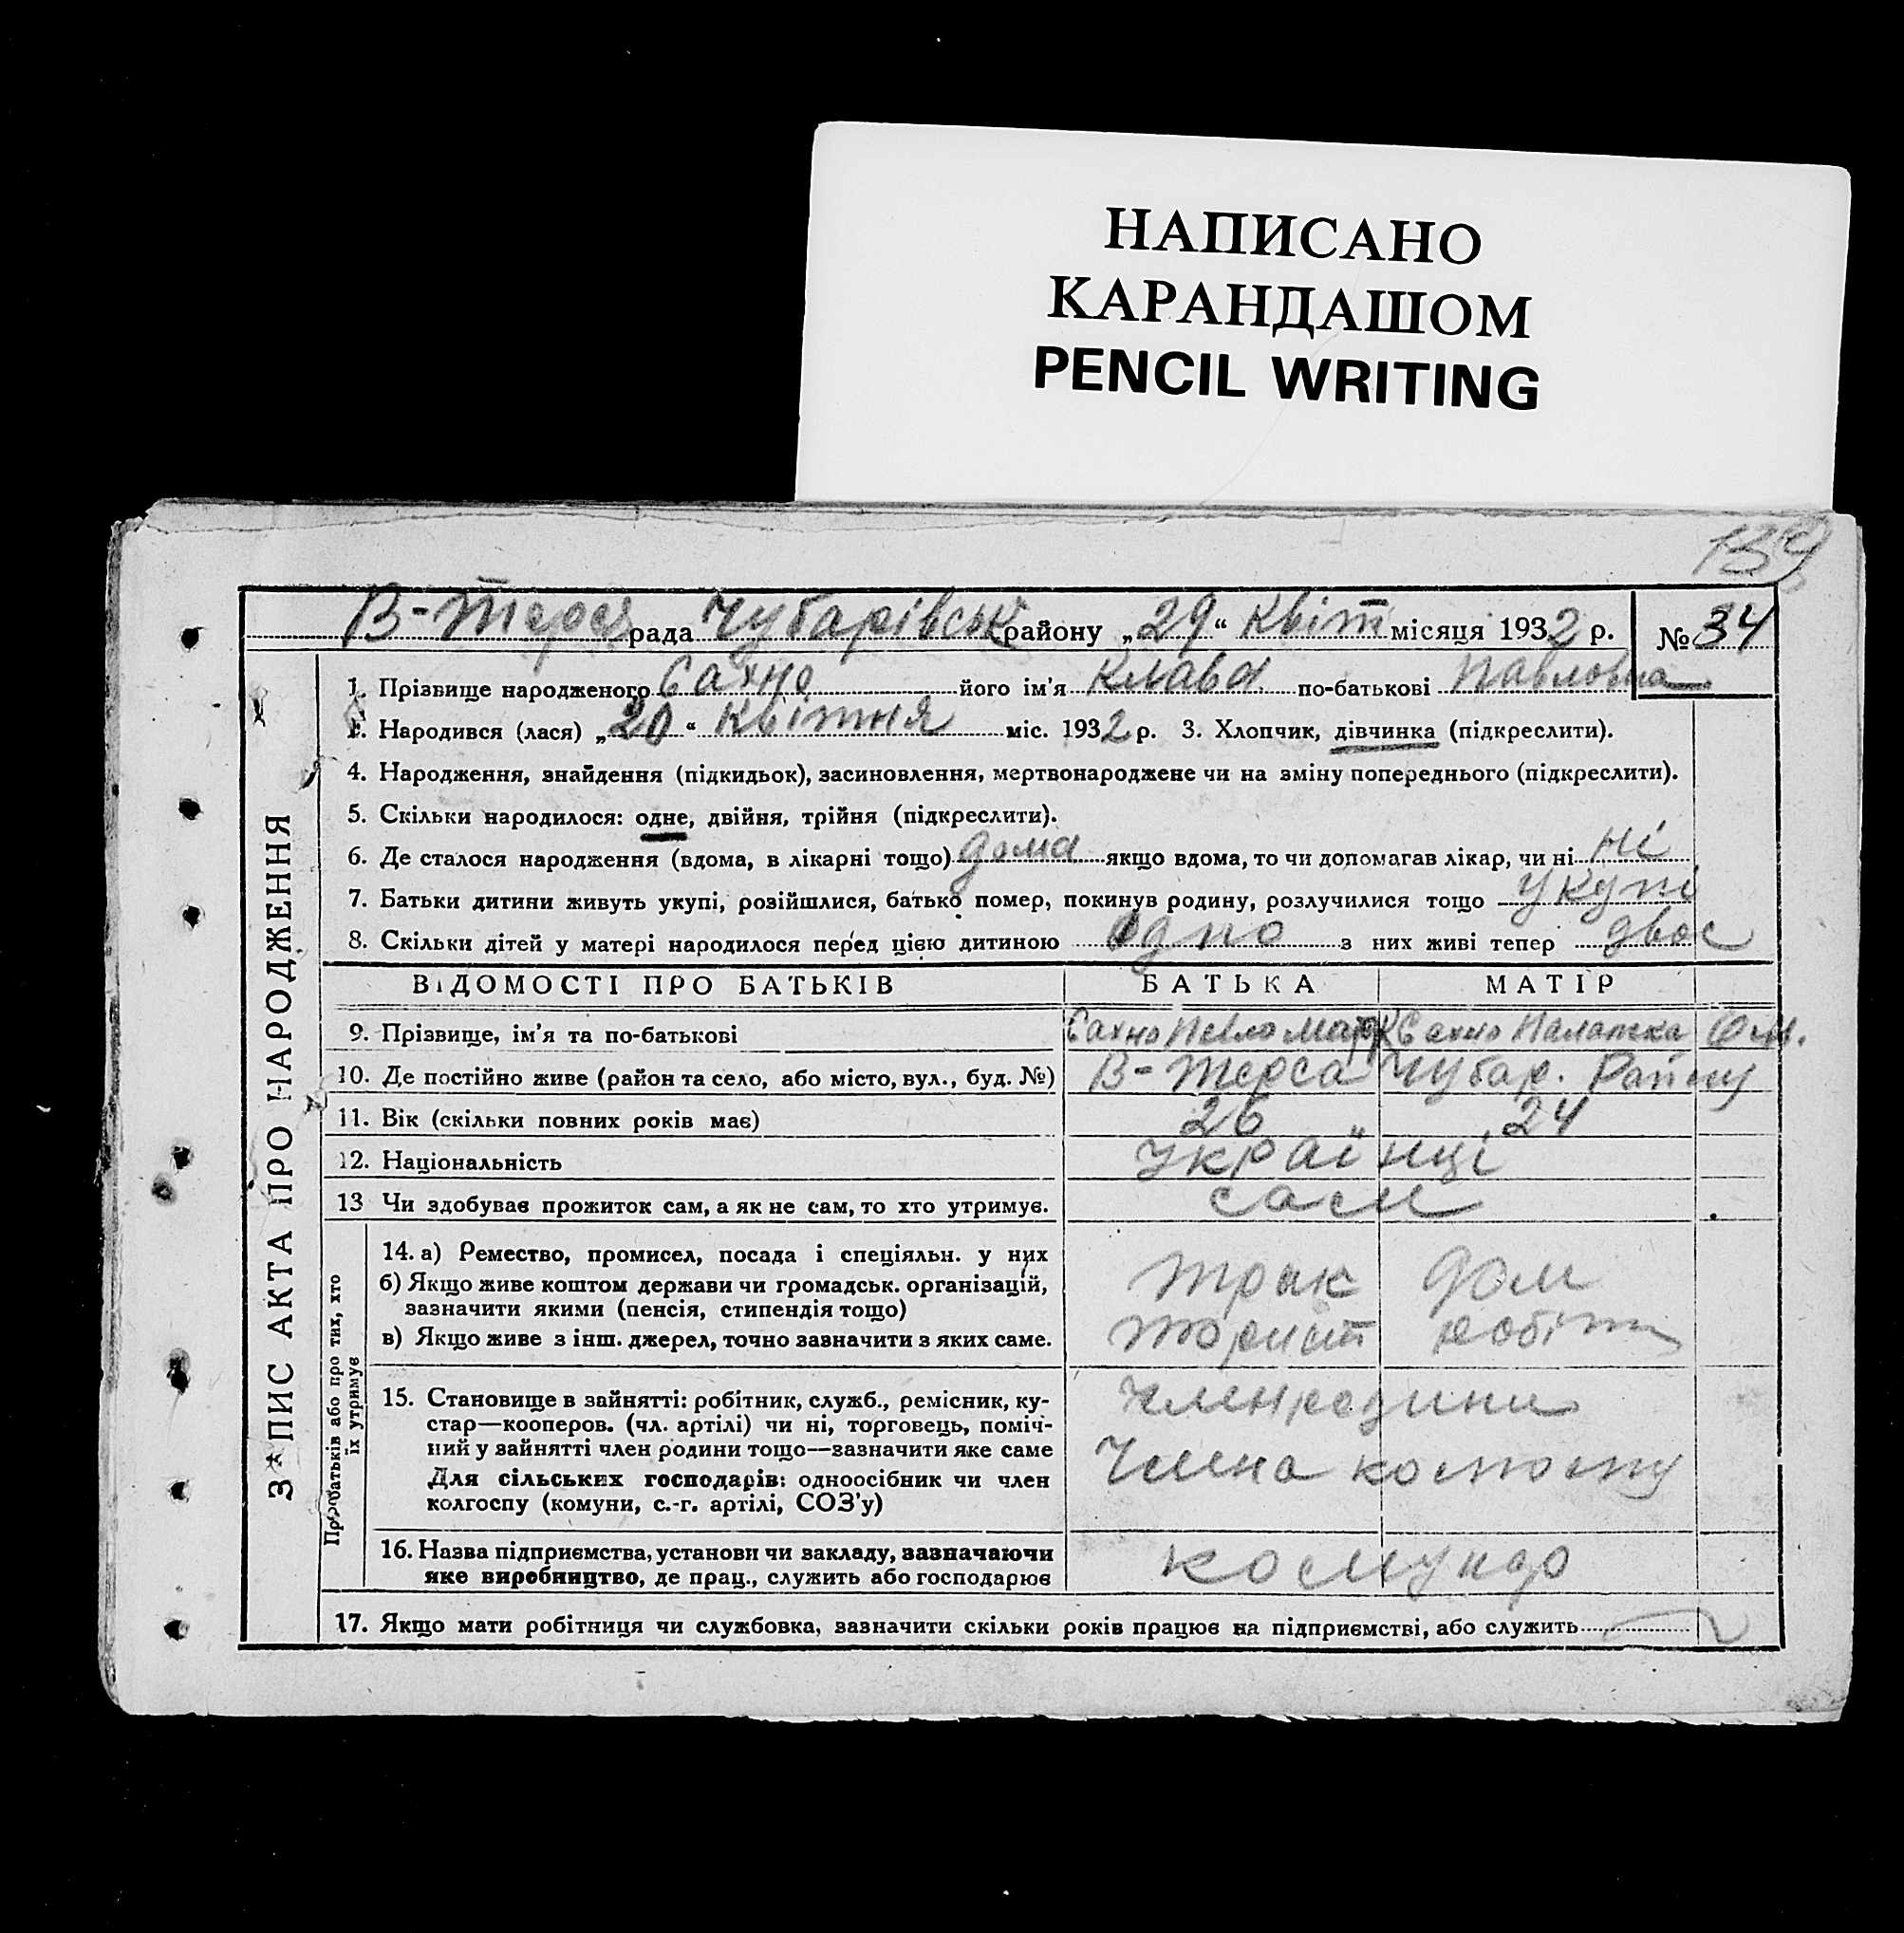 НАПИСАНО
КАРАНДАШОМ
PENCIL WRITING
139
В-Терся рада Чубарівськ району „29“ Квіт місяця 1932 р. № 34
ЗАПИС АКТА ПРО НАРОДЖЕННЯ
1. Прізвище народженого Сахно його ім'я Клава по-батькові Павловна
2. Народився (лася) „20“ квітня міс. 1932 р. 3. Хлопчик, дівчинка (підкреслити).
4. Народження, знайдення (підкидьок), засиновлення, мертвонароджене чи на зміну попереднього (підкреслити).
5. Скільки народилося: одне, двійня, трійня (підкреслити).
6. Де сталося народження (вдома, в лікарні тощо) дома якщо вдома, то чи допомагав лікар, чи ні ні
7. Батьки дитини живуть укупі, розійшлися, батько помер, покинув родину, розлучилися тощо укупі
8. Скільки дітей у матері народилося перед цією дитиною одно з них живі тепер двоє
ВІДОМОСТІ ПРО БАТЬКІВ БАТЬКА МАТІР
9. Прізвище, ім'я та по-батькові Сахно Павло Марк Сахно Палажка
10. Де постійно живе (район та село, або місто, вул., буд. №) В-Терса Чубар. Району
11. Вік (скільки повних років має) 26 24
12. Національність українці
13 Чи здобуває прожиток сам, а як не сам, то хто утримує. сами
Про батьків або про тих, хто
їх утримує
14. а) Ремество, промисел, посада і спеціяльн. у них
б) Якщо живе коштом держави чи громадськ. організацій,
зазначити якими (пенсія, стипендія тощо)
в) Якщо живе з інш. джерел, точно зазначити з яких саме.
трак дом
торист робітн
15. Становище в зайнятті: робітник, служб., ремісник, ку-
стар—кооперов. (чл. артілі) чи ні, торговець, поміч-
ний у зайнятті член родини тощо—зазначити яке саме
Для сільських господарів: одноосібник чи член
колгоспу (комуни, с.-г. артілі, СОЗ'у)
член родини
Члена
16. Назва підприємства, установи чи закладу, зазначаючи
яке виробництво, де прац., служить або господарює
17. Якщо мати робітниця чи службовка, зазначити скільки років працює на підприємстві, або служить